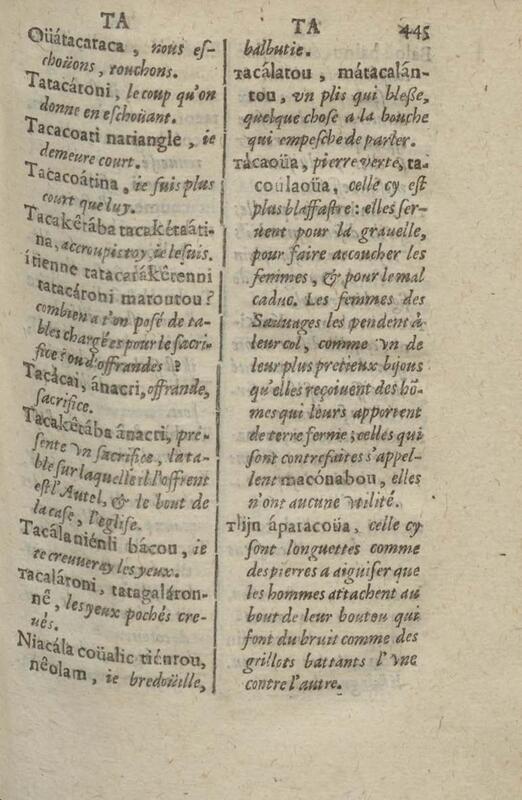 TA
Oüátacaraca, nous es-
choüons, rouchons.
Tatacátoni, le coup qu'on
donne en eschoüant.
Tacacoati natiangle, ie
demeure court.
Tacacoátina, ie suis plus
court que luy.
Tacakêtába tacakétaáti-
na, accroupis toy, ie le suis.
itienne tatacarákêtenni
tatacátoni matoutou?
combien a t'on posé de ta-
bles chargées pour le sacri-
fice? ou d'offrandes?
Tacácai, ánacri, offrande,
sacrifice.
Tacakêtába ânacri, pre-
sente vn sacrifice, la ta-
ble sur laquelle il l'offrent
est l'Autel, & le bout de
la case, l'eglise.
Tacálaniénli bácou, ie
te creuueray les yeux.
Tacalátoni, tatagaláton-
nê, les yeux pochés cre-
ués.
Niacála coüalic tiéntou,
nêolam, ie bredoüille,
TA
445
balbutie.
Tacálatou, mátacalán-
tou, vn plis qui blesse,
quelque chose a la bouche
qui empesche de parler.
Tácaoüa, pierre verte, ta-
coulaoüa, celle cy est
plus blaffastre: elles ser-
uent pour la grauelle,
pour faire accoucher les
femmes, & pour le mal
caduc. Les femmes des
Sauuages les pendent à
leur col, comme vn de
leur plus pretieux bijous
qu'elles reçoiuent des hõ-
mes qui leurs apportent
de terre ferme; celles qui
sont contrefaites s'appel-
lent macónabou, elles
n'ont aucune vtilité.
Tlijn ápatacoüa, celle cy
sont longuettes comme
des pierres a aiguiser que
les hommes attachent au
bout de leur boutou qui
font du bruit comme des
grillots battants l'vne
contre l'autre.